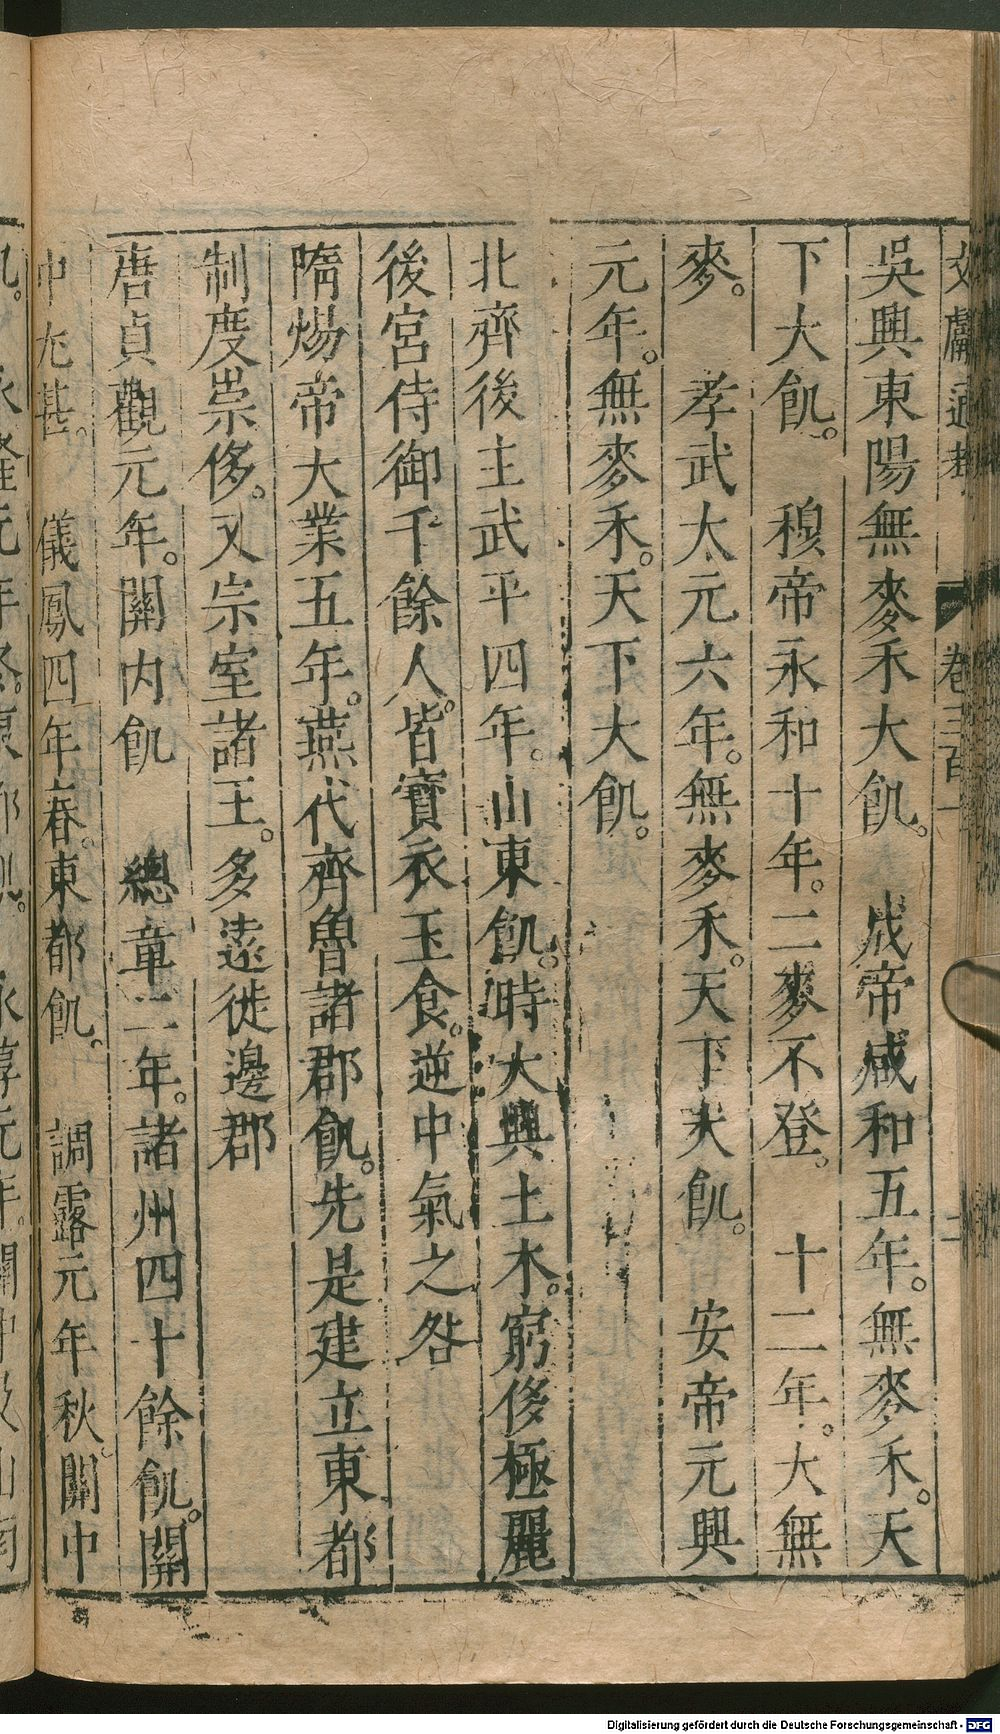 文獻通考 卷三百一 二
吳興東陽無麥禾大飢。 成帝咸和五年。無麥禾。天
下大飢。 穆帝永和十年。二麥不登。 十二年。大無
麥。 孝武太元六年。無麥禾。天下大飢。 安帝元興
元年。無麥禾。天下大飢。
北齊後主武平四年。山東飢。時大興土木。窮侈極麗
後宮侍御千餘人。皆寶衣玉食。逆中氣之咎
隋煬帝大業五年。燕代齊魯諸郡飢。先是建立東都
制度崇侈。又宗室諸王。多遠徙邊郡
唐貞觀元年。關內飢 總章二年。諸州四十餘飢。關
中尤甚。 儀鳳四年春。東都飢。 調露元年秋。關中
飢。 永隆元年冬。東都飢。 永淳元年。關中及山南
Digitalisierung gefördert durch die Deutsche Forschungsgemeinschaft - DFG